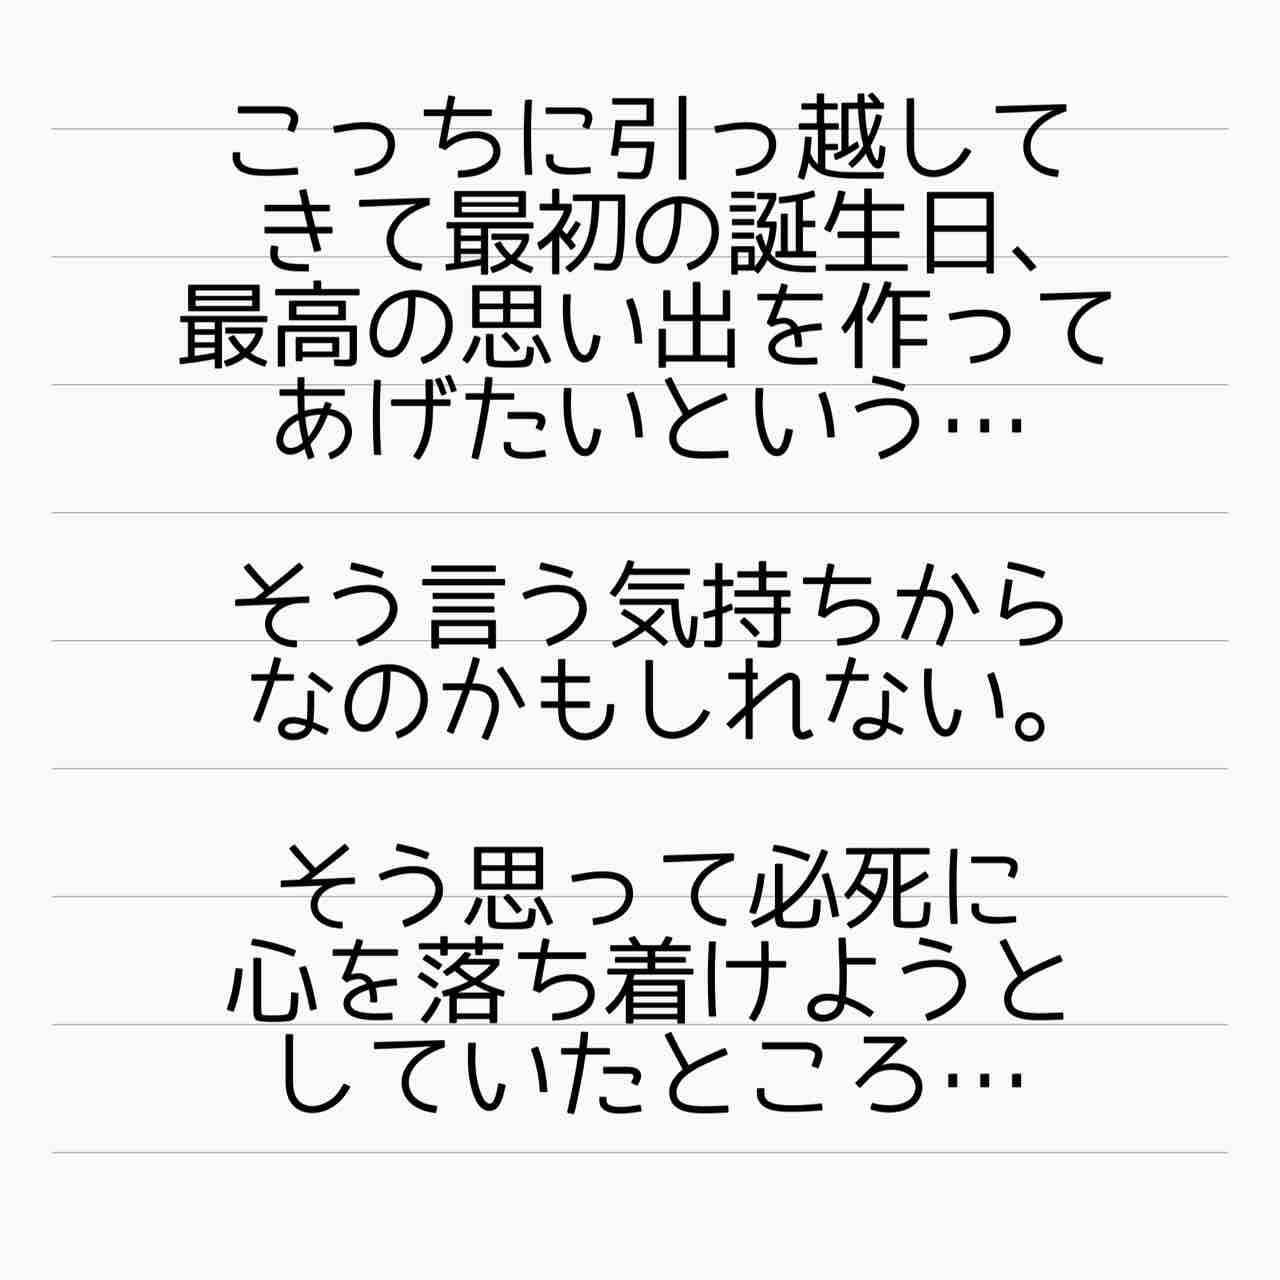 こっちに引っ越して
きて最初の誕生日、
最高の思い出を作って
あげたいという…
そう言う気持ちから
なのかもしれない。
そう思って必死に
心を落ち着けようと
していたところ…